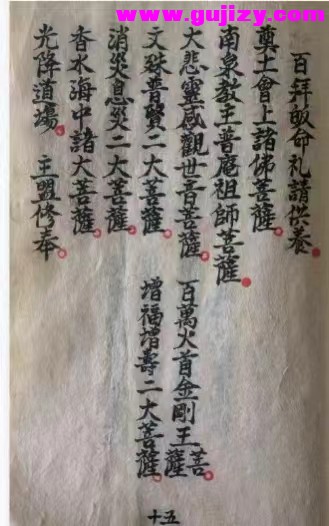 www.gujizy.com
百拜皈命礼請供養
奠土會上諸佛菩薩
南泉教主普庵祖師菩薩
大悲靈感觀世音菩薩
百萬火首金剛王菩薩
文殊普賢二大菩薩
增福增壽二大菩薩
消災息災二大菩薩
香水海中諸大菩薩
光降道場 主盟修奉
十五